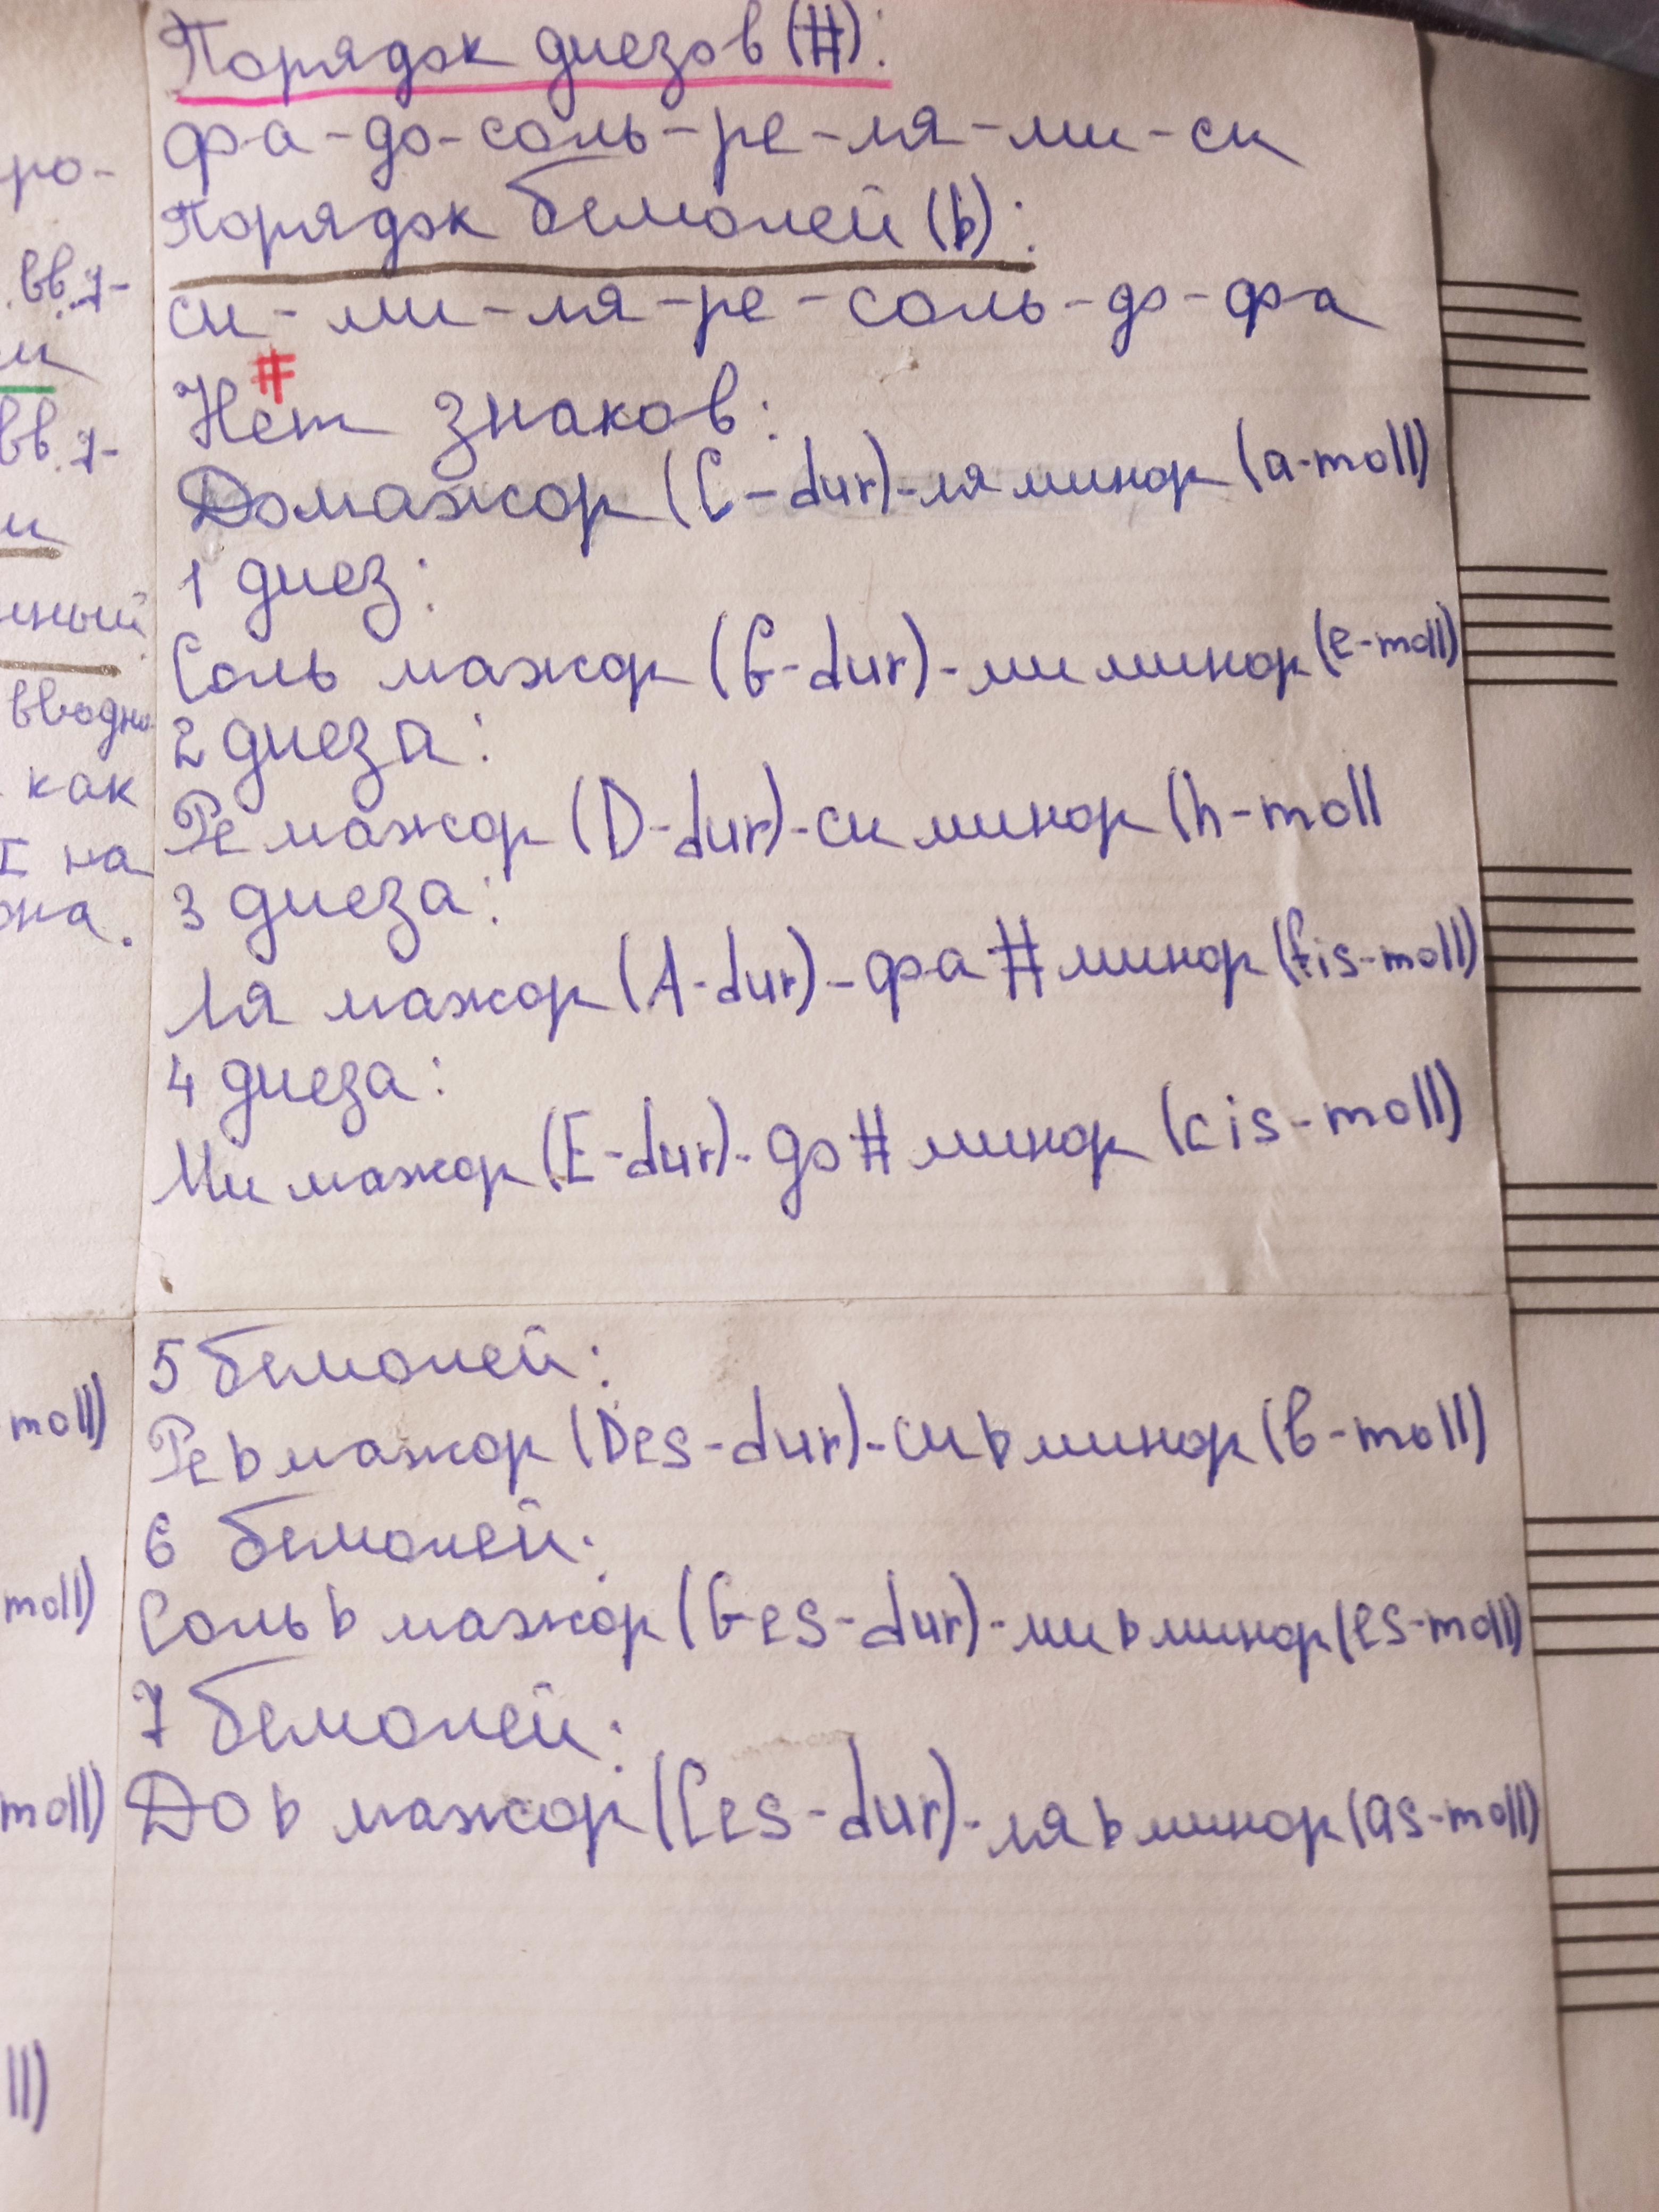 Порядок диезов (#):
фа-до-соль-ре-ля-ми-си
Порядок бемолей (b):
си-ми-ля-ре-соль-до-фа
#
Нет знаков:
До мажор (C-dur)-ля минор (a-moll)
1 диез:
Соль мажор (G-dur)-ми минор (e-moll)
2 диеза:
Ре мажор (D-dur)-си минор (h-moll
3 диеза:
Ля мажор (A-dur)-фа # минор (fis-moll)
4 диеза:
Ми мажор (E-dur)-до # минор (cis-moll)
5 бемолей:
Ре b мажор (Des-dur)-си b минор (b-moll)
6 бемолей:
Соль b мажор (Ges-dur)-ми b минор (es-moll)
7 бемолей:
До b мажор (Ces-dur)-ля b минор (as-moll)
ро-
вв. 7-
и
вв. 7-
и
нный
вводн
как
I на
она.
moll)
moll)
moll)
ll)